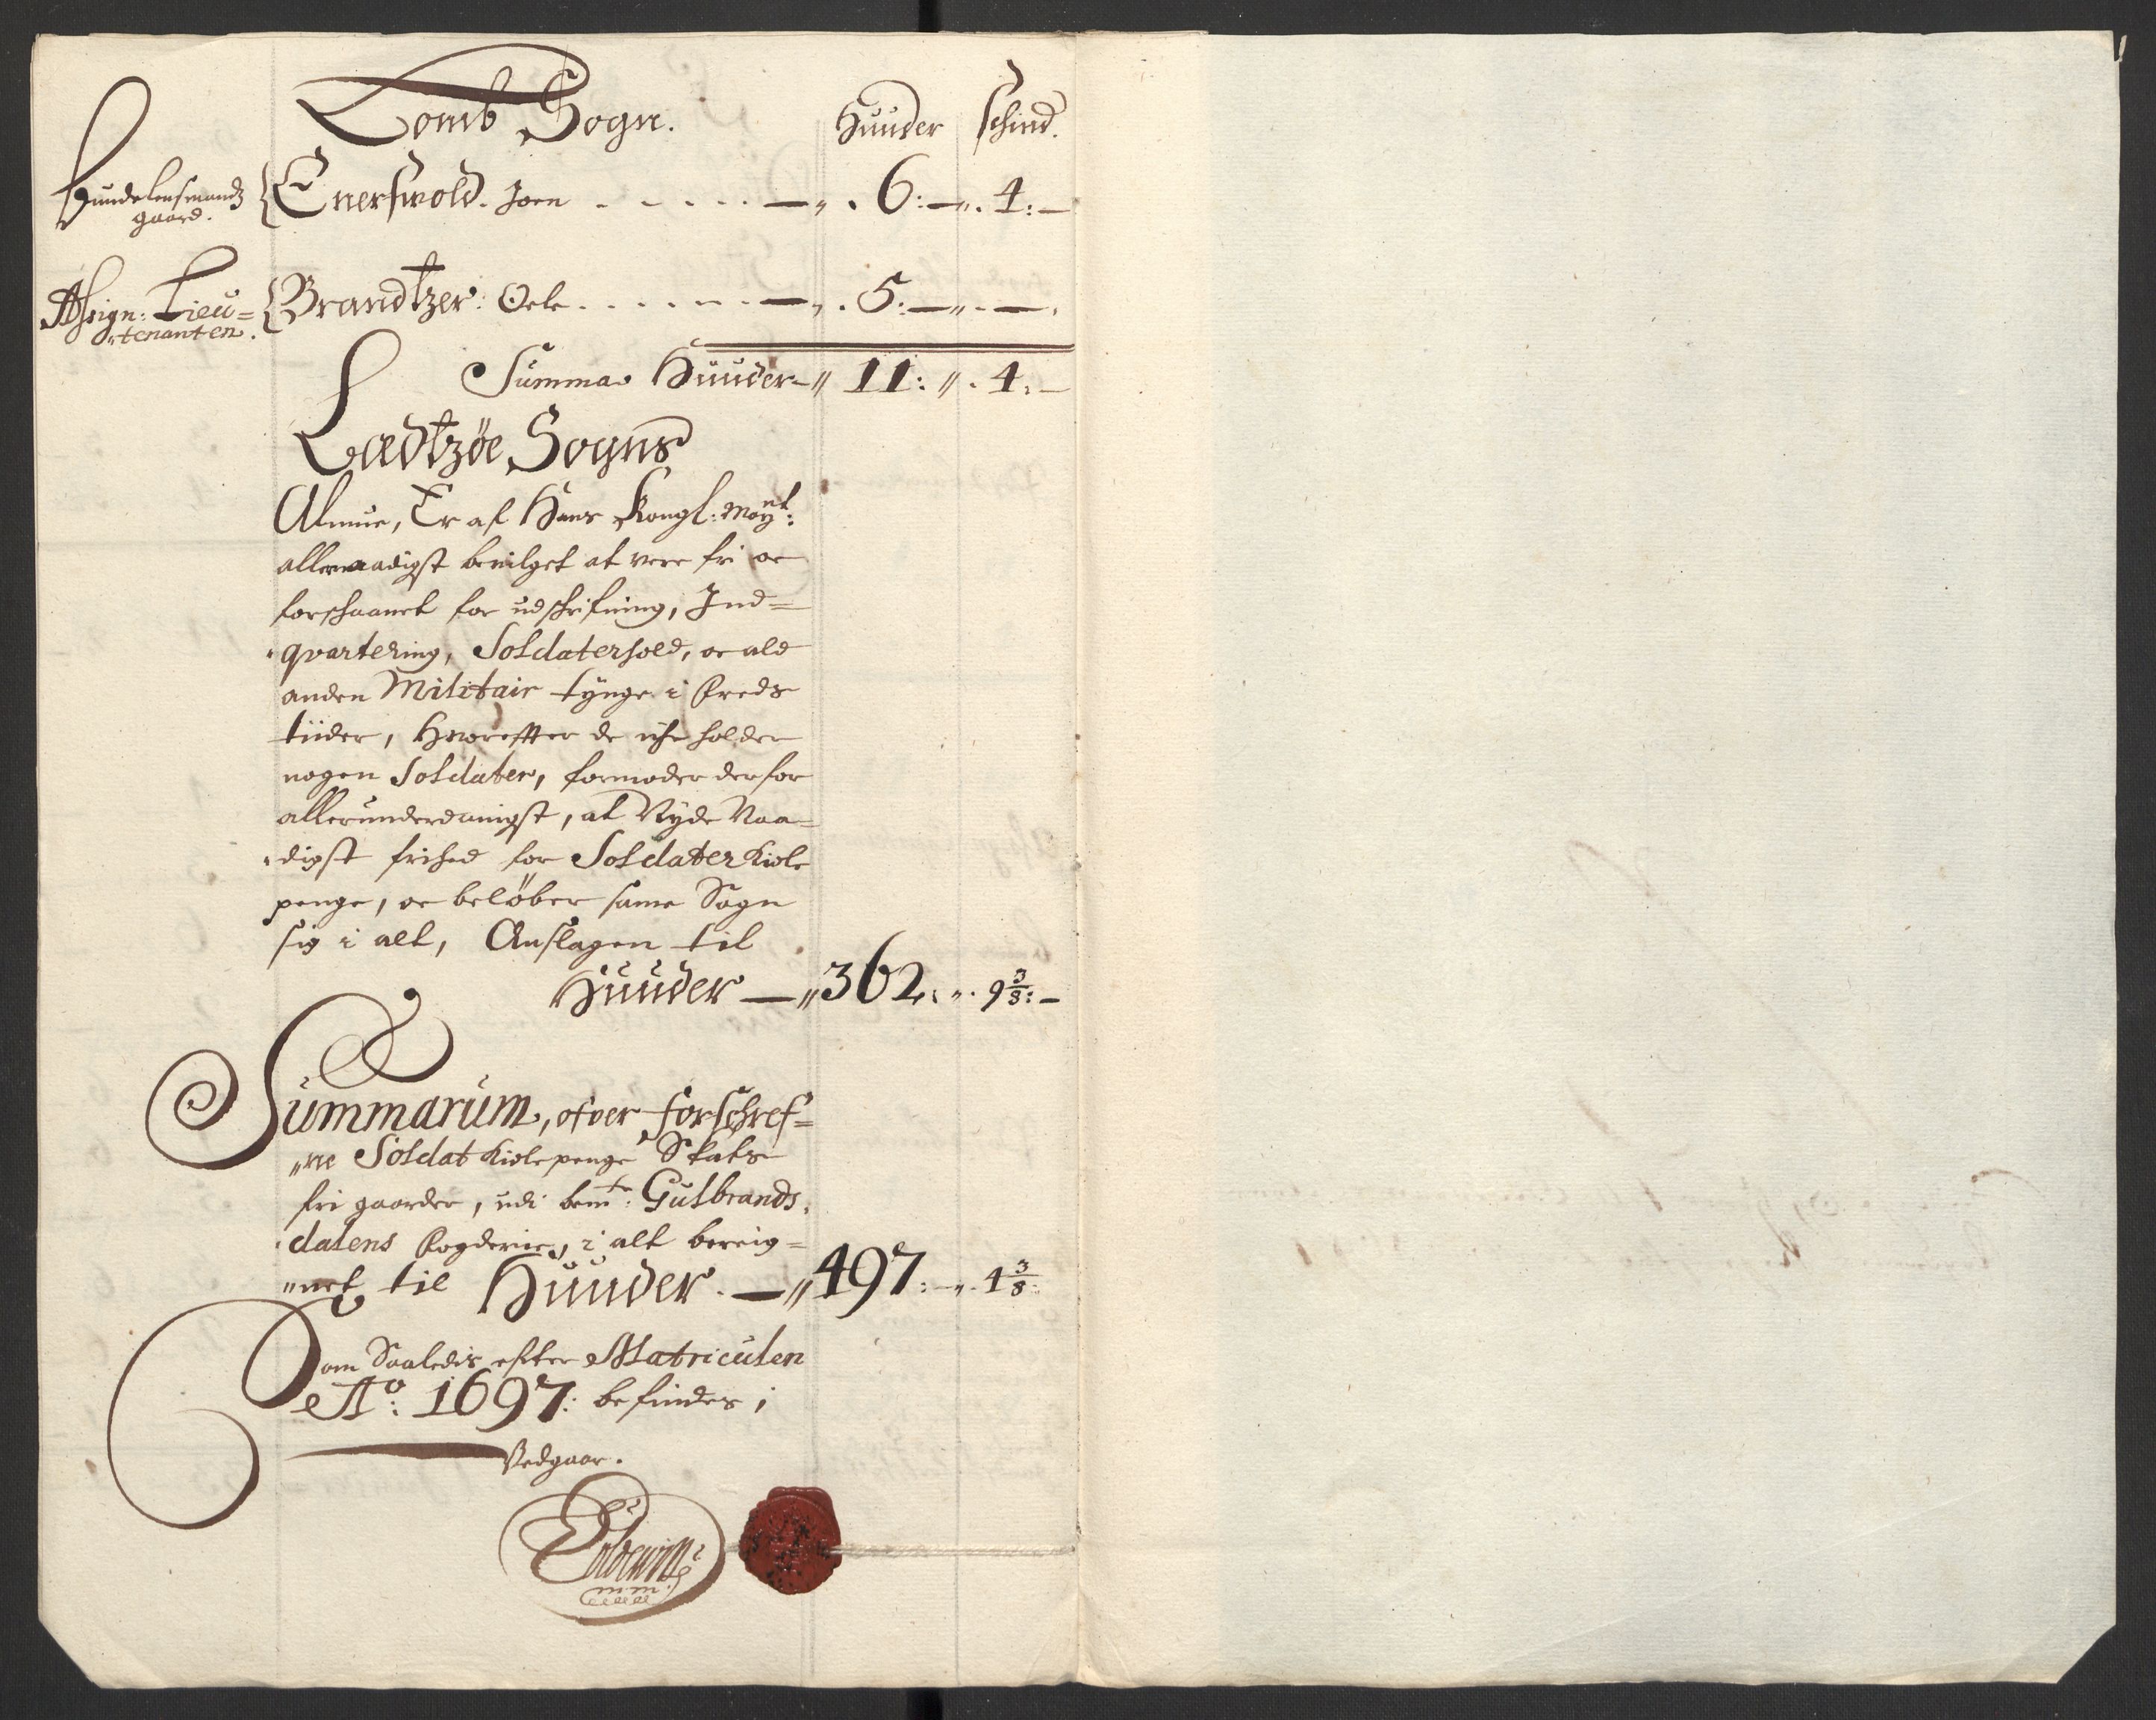 Lomb Sogn.
Huuder schind.
Bundelensmands
gaard.
Enerswold. Joen - - - - - 6: 4:
Assign: Lieu=
tenanten.
Brandtzer: Oele - - - - - 5: —
Summa Huuder 11: 4:
Lædtzöe Sogns
Almue, Er af Hans Kongl: Mayt:
allernaadigst bevilget at vere fri oc
forschaanet for udschrifning, Ind=
qvartering, Soldaterhold, oc ald
anden Militair tynge i Freds
tiider, Hvorefter de iche holder
nogen Soldater, formoder derfor
allerunderdanigst, at Nyde Naa=
digst frihed for Soldater Kiole
penge, oc belöber same Sogn
sig i alt, Anslagen til
Huuder — 362: 9 3/8:
Summarum, ofver forschref=
ne Soldat Kiolepenge Skats
fri gaarder, udi bemte: Gulbrands
dalens Fogderie, i alt bereig=
net til Huuder. — 497: 4 3/8:
Som Saaledis efter Matriculen
Ao: 1697: befindes,
Vedgaar.
Toldewin
mm: